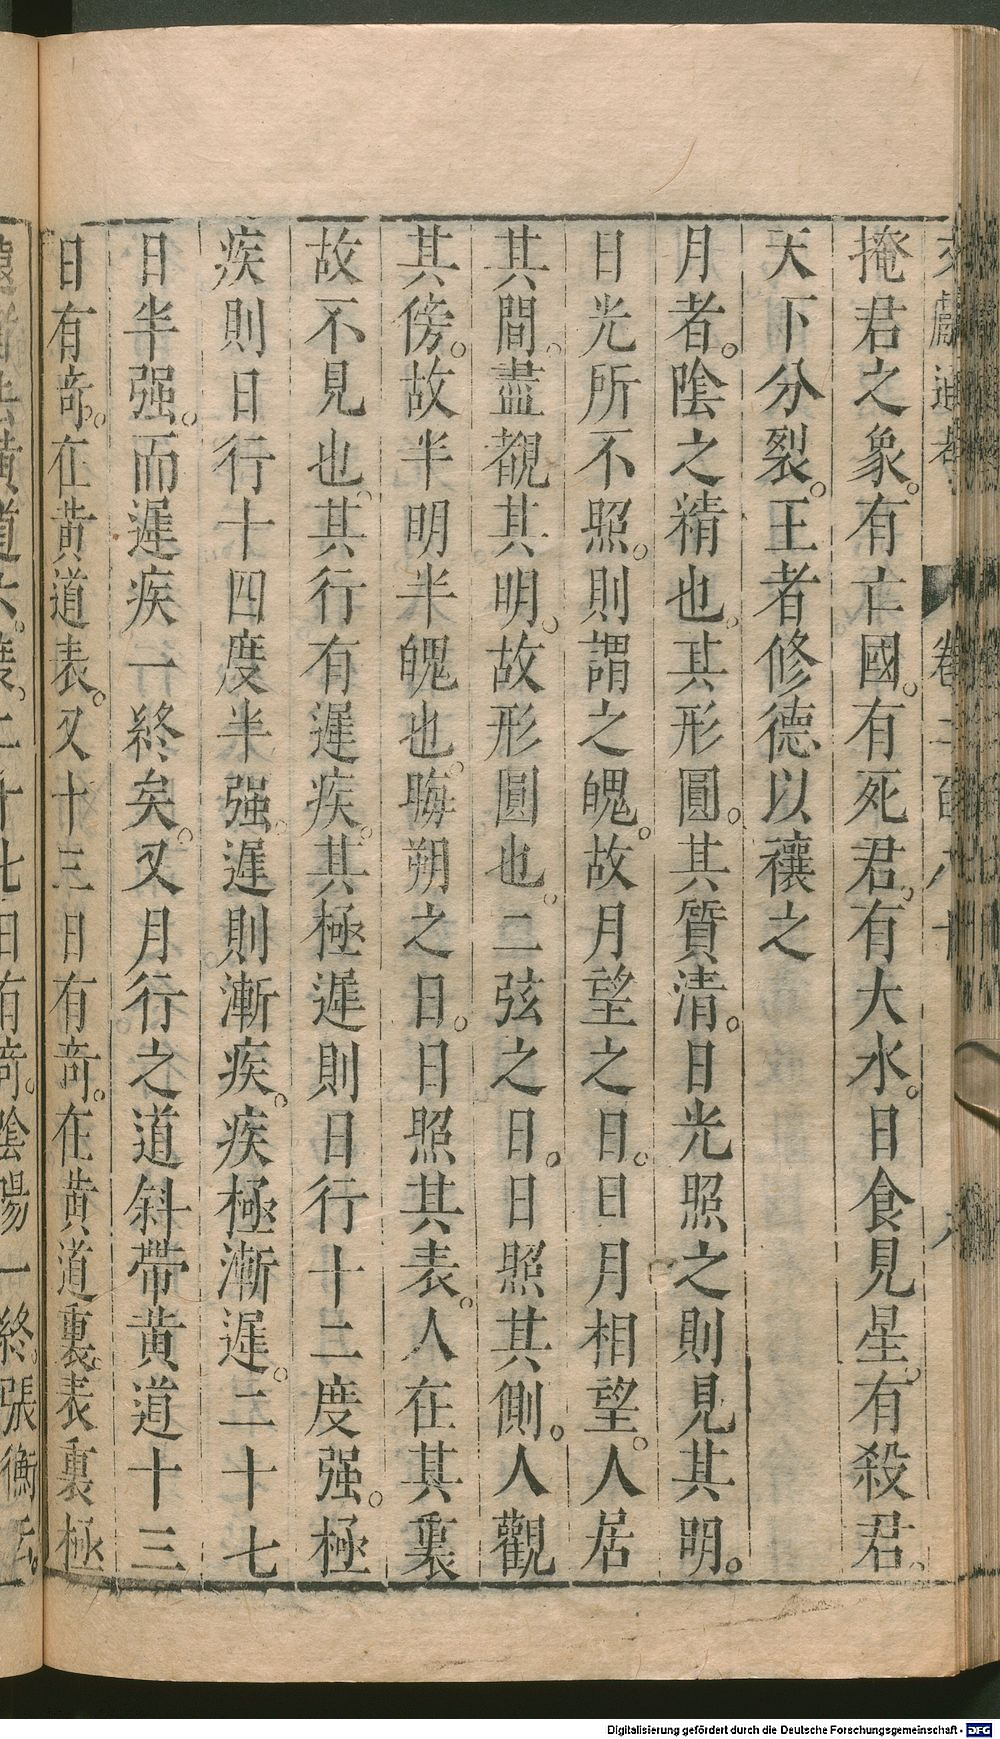 掩君之象。有亡國。有死君。有大水。日食見星。有殺君。
天下分裂。王者修德以禳之
月者。陰之精也。其形圓。其質清。日光照之則見其明。
日光所不照。則謂之魄。故月望之日。日月相望。人居
其間。盡覩其明。故形圓也。二弦之日。日照其側。人觀
其傍。故半明半魄也。晦朔之日。日照其表。人在其裏
故不見也。其行有遲疾。其極遲則日行十二度强。極
疾則日行十四度半强。遲則漸疾。疾極漸遲。二十七
日半强。而遲疾一終矣。又月行之道斜帶黃道十三
日有奇。在黃道表。又十三日有奇。在黃道裏。表裏極
黃道六度。二十七日有奇。陰陽一終。張衡云。
Digitalisierung gefördert durch die Deutsche Forschungsgemeinschaft - DFG